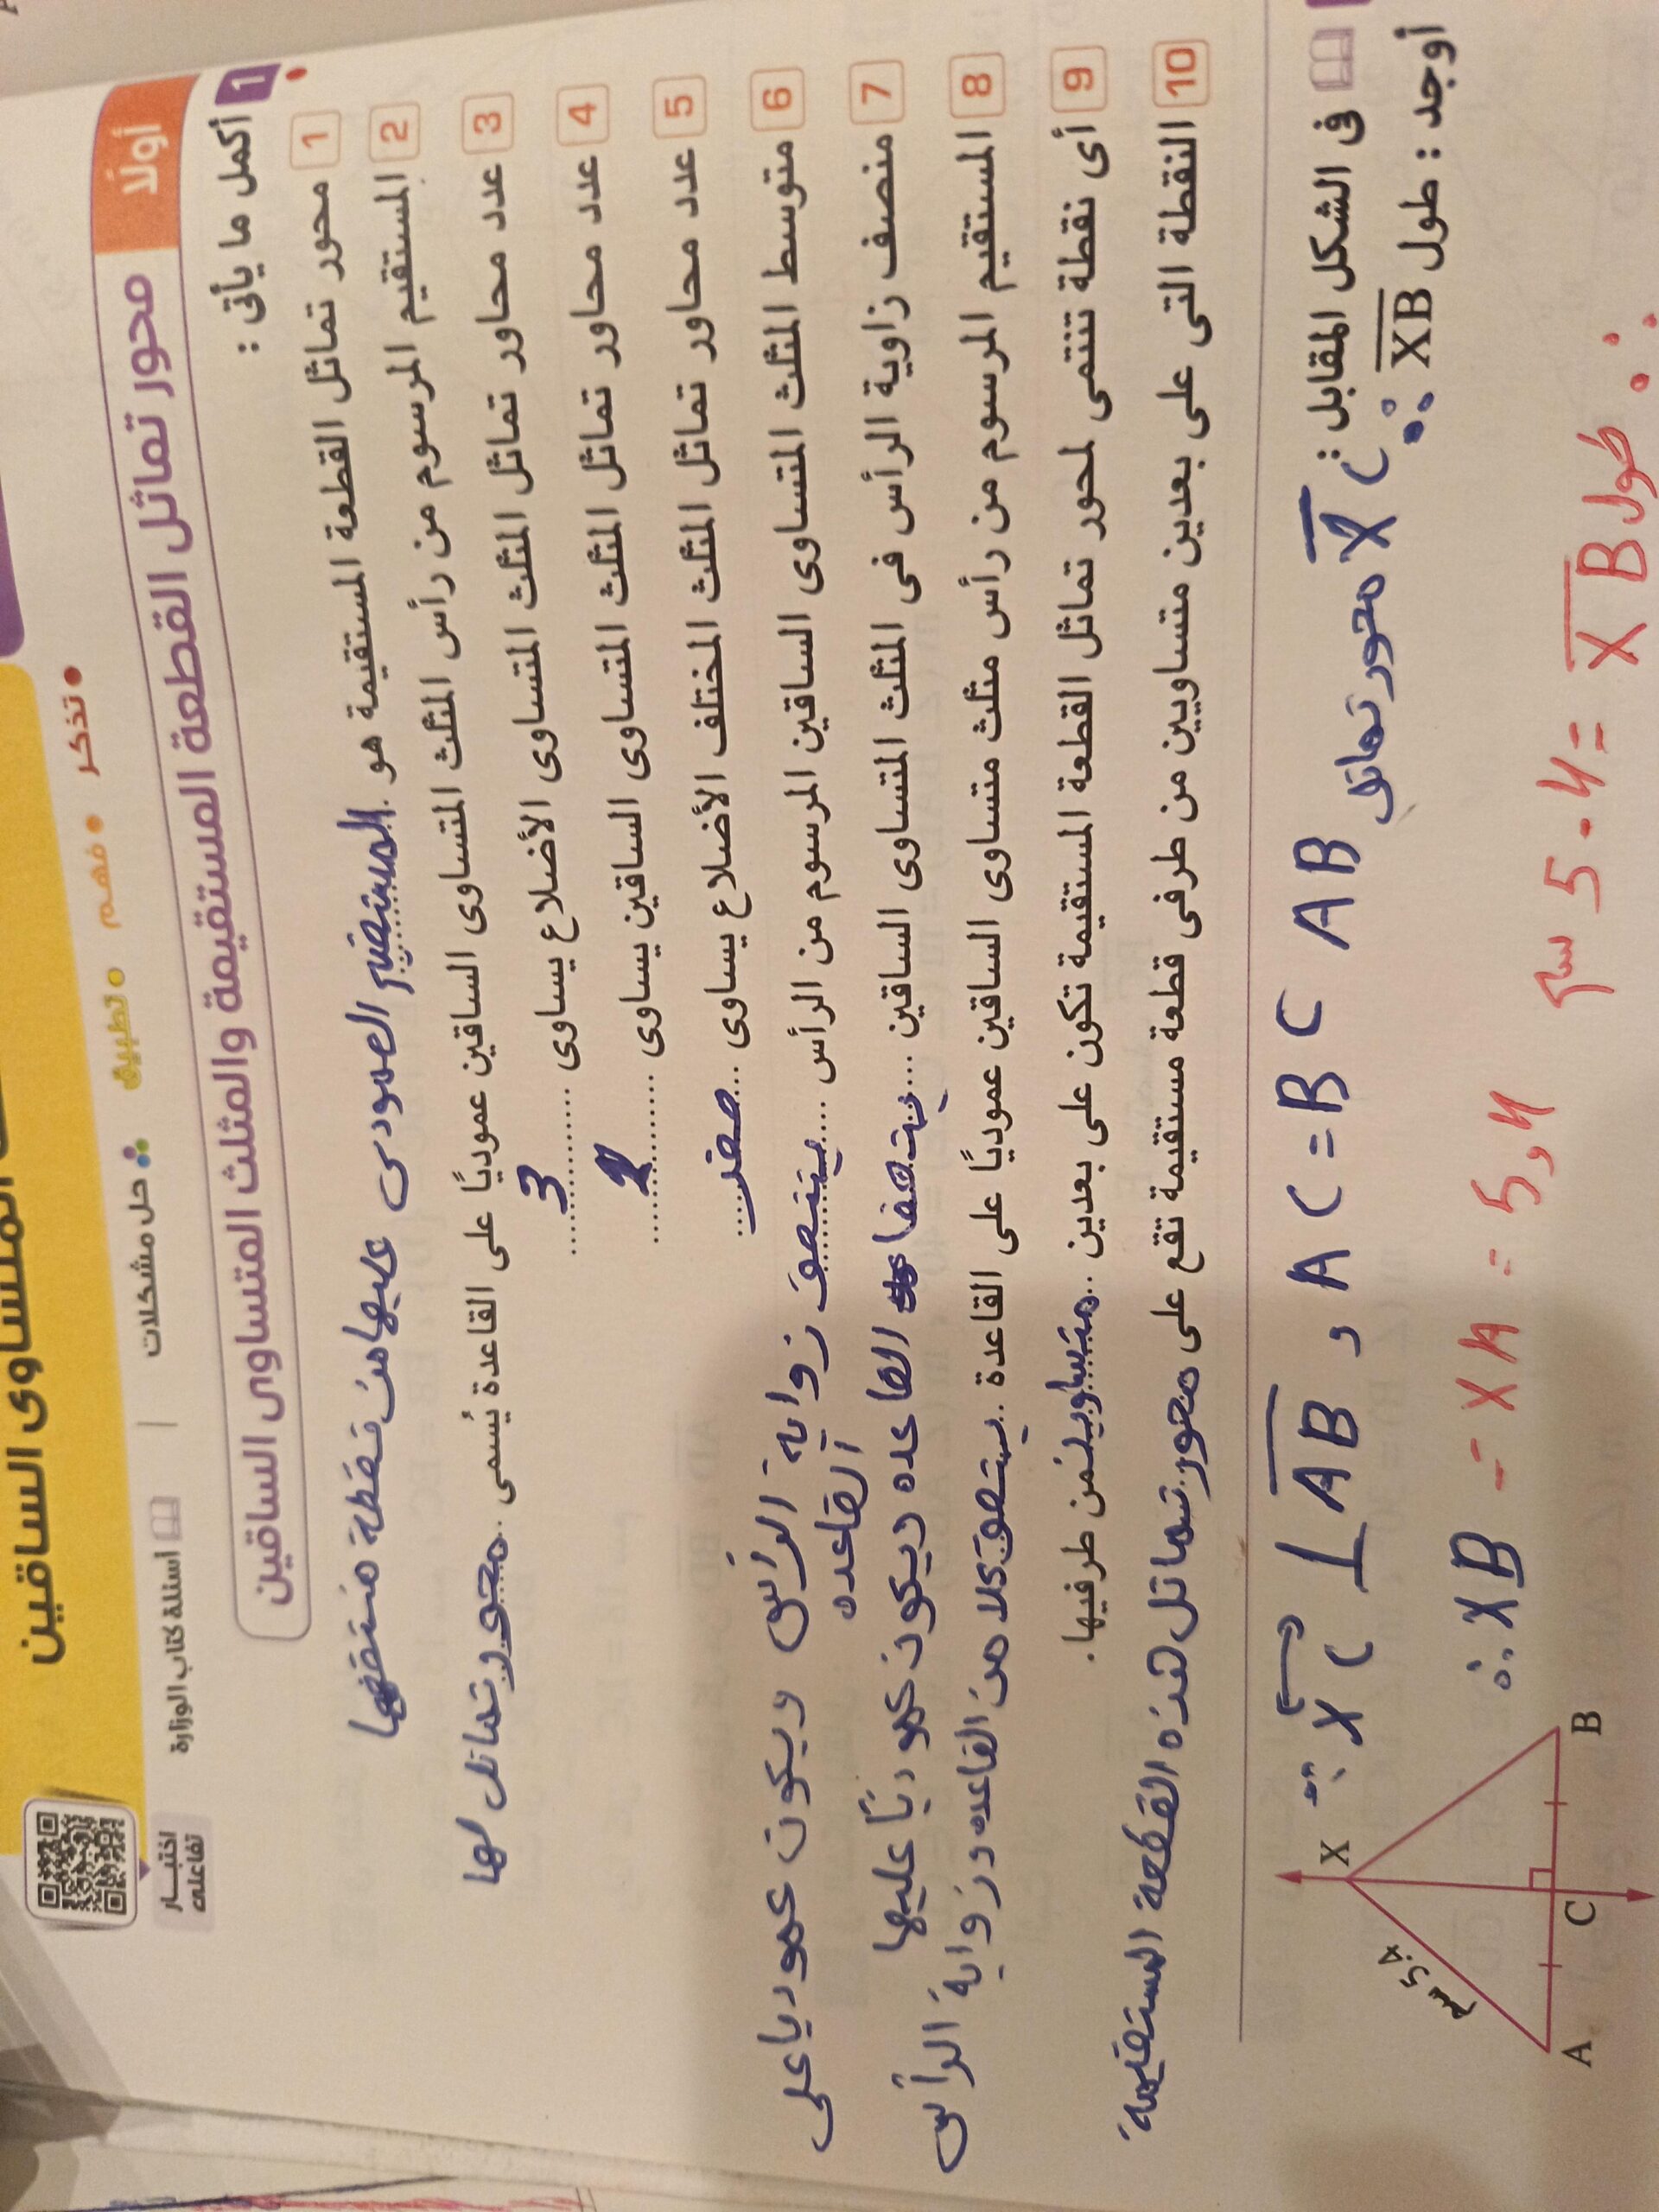 المتساوى الساقين
اختبار تفاعلى
أسئلة كتاب الوزارة
حل مشكلات
تطبيق
فهم
تذكر
أولًا
محور تماثل القطعة المستقيمة والمثلث المتساوى الساقين
1 أكمل ما يأتى :
1 محور تماثل القطعة المستقيمة هو المستقيم العمودى عليها من نقطة منتصفها
2 المستقيم المرسوم من رأس المثلث المتساوى الساقين عموديًا على القاعدة يُسمى محور تماثل لها
3 عدد محاور تماثل المثلث المتساوى الأضلاع يساوى 3
4 عدد محاور تماثل المثلث المتساوى الساقين يساوى
5 عدد محاور تماثل المثلث المختلف الأضلاع يساوى صفر
6 متوسط المثلث المتساوى الساقين المرسوم من الرأس ينصف زواية الرأس ويكون عموديا على
القاعده
7 منصف زاوية الرأس فى المثلث المتساوى الساقين ينصف القاعده ويكون عموديًا عليها
8 المستقيم المرسوم من رأس مثلث متساوى الساقين عموديًا على القاعدة ينصف كلا من القاعده وزواية الرأس
9 أى نقطة تنتمى لمحور تماثل القطعة المستقيمة تكون على بعدين متساويين من طرفيها.
10 النقطة التى على بعدين متساويين من طرفى قطعة مستقيمة تقع على محور تماثل هذه القطعة المستقيمة
فى الشكل المقابل :
أوجد : طول XB
∵ XC ⊥ AB و AC = BC
∴ XC محور تماثل AB
∴ XB = XA = 5,4
∴ طول XB = 5.4 سم
X
5.4 سم
A
C
B